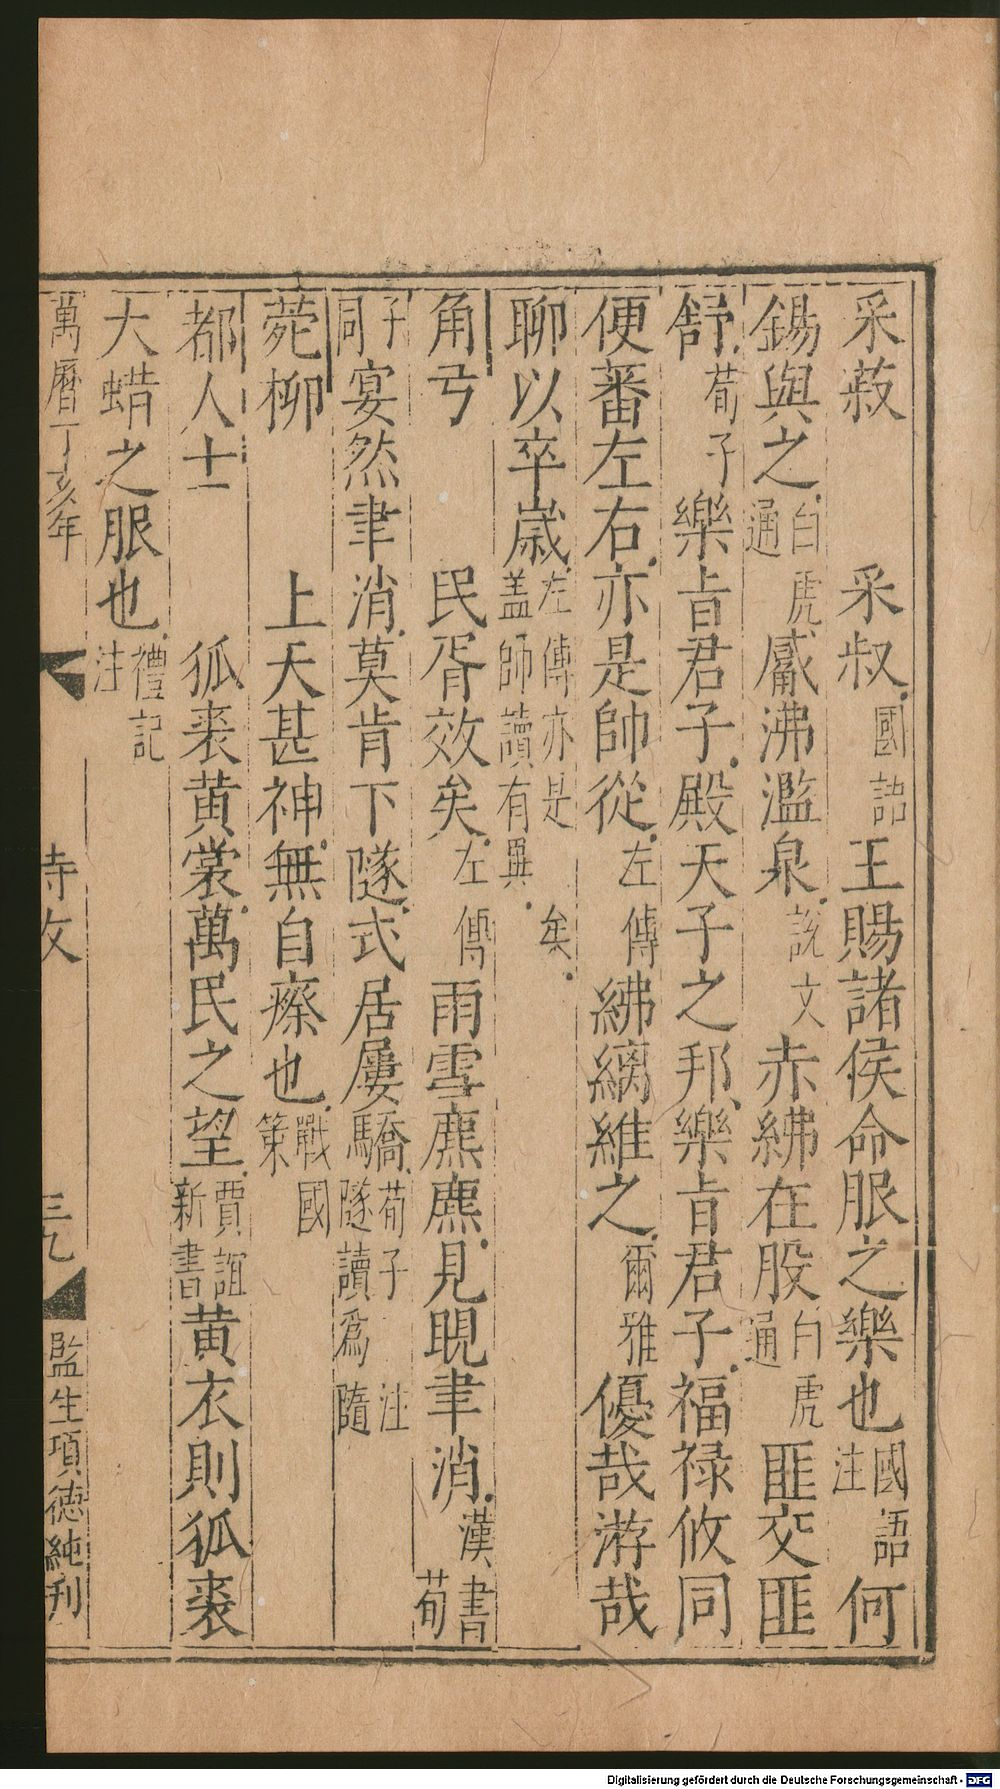 采菽　采叔國語王賜諸侯命服之樂也國語注何
錫與之白虎通觱沸濫泉說文赤紼在股白虎通匪交匪
舒荀子樂旨君子殿天子之邦樂旨君子福祿攸同
便蕃左右亦是帥從左傳紼縭維之爾雅優哉游哉
聊以卒歲左傳亦是矣蓋師讀有異
角弓　民胥效矣左傳雨雪麃麃見晛聿消漢書荀
子同宴然聿消莫肯下隧式居屢驕荀子注隧讀爲隨
菀柳　上天甚神無自瘵也戰國策
都人士　狐裘黃裳萬民之望賈誼新書黃衣則狐裘
大蜡之服也禮記注
萬曆丁亥年　三九　監生項德純刊
Digitalisierung gefördert durch die Deutsche Forschungsgemeinschaft - DFG